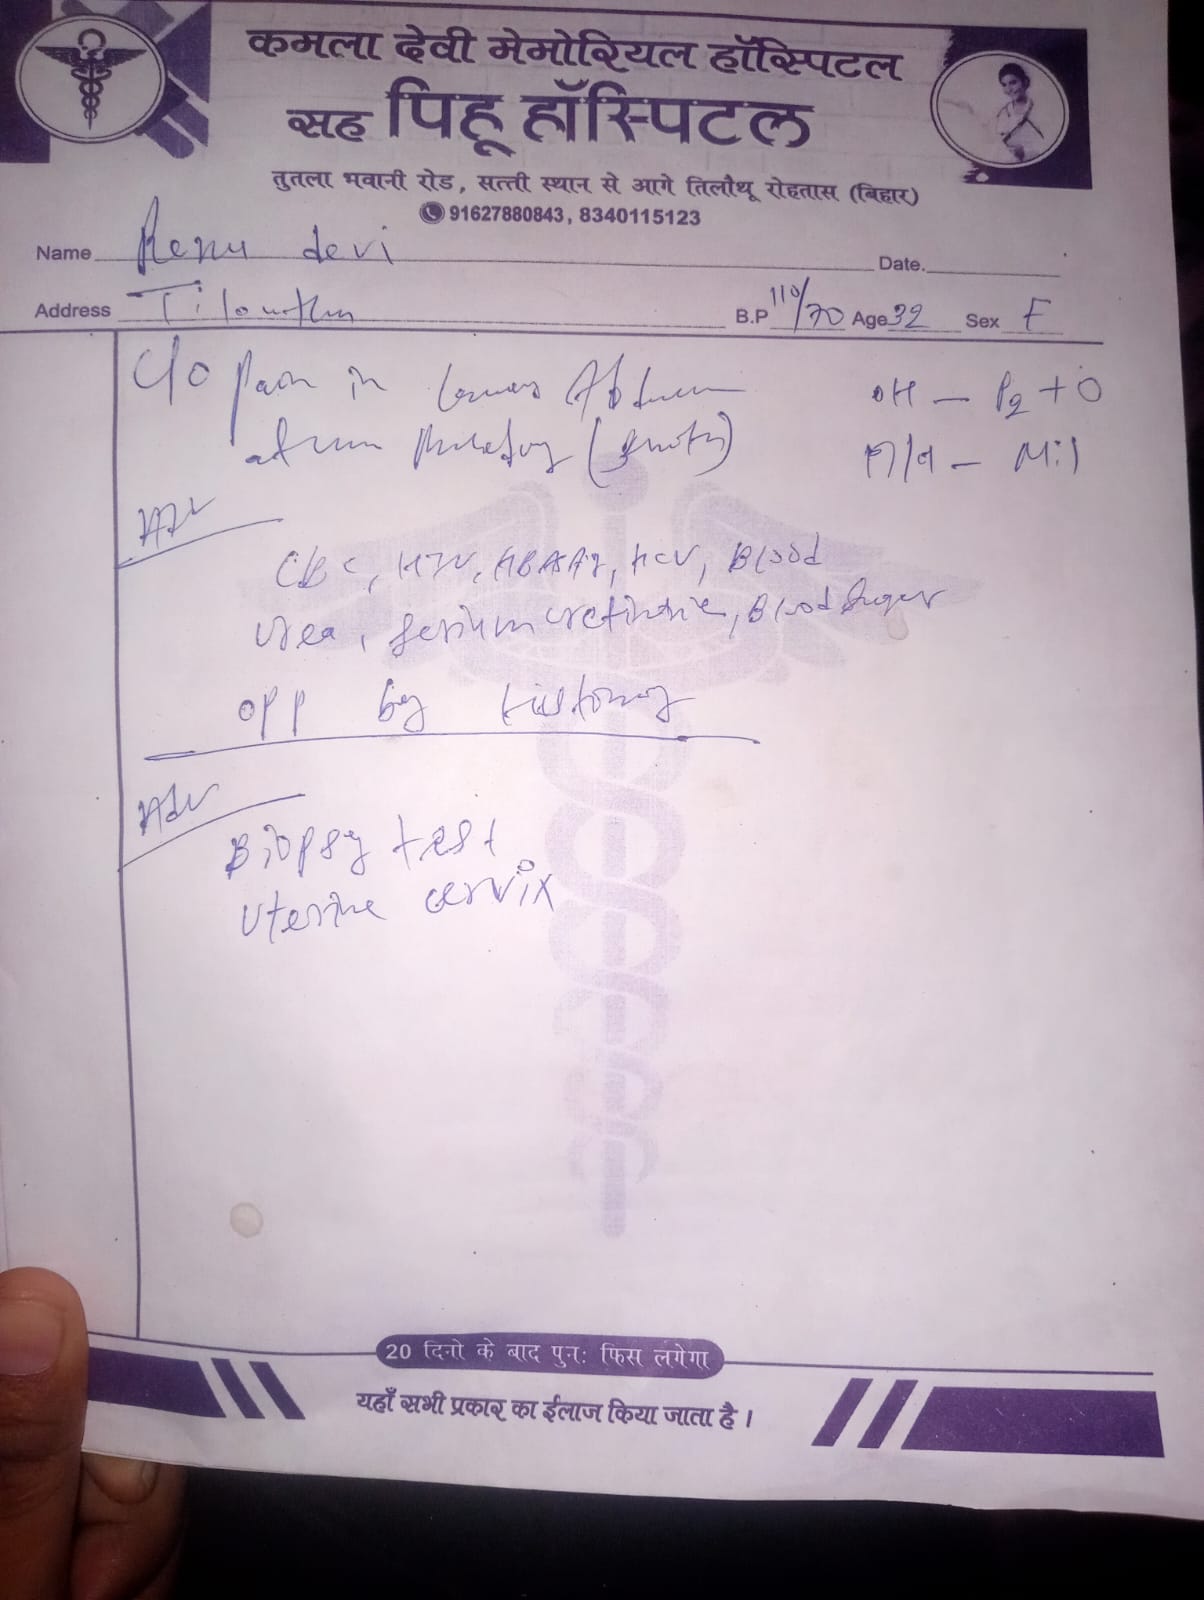 कमला देवी मेमोरियल हॉस्पिटल
सह पिहू हॉस्पिटल
तुतला भवानी रोड, सत्ती स्थान से आगे तिलौथू रोहतास (बिहार)
91627880843, 8340115123
Name Renu devi Date.
Address Tilouthu B.P 110/70 Age 32 Sex F
C/o Pain in lower Abdomen OH - P2+0
M/H - Nil
Adv
CBC, HIV, HBsAg, HCV, Blood
Urea, Serium cretinine, Blood Suger
opp by
Adv
Biopsy test
Uterine cervix
20 दिनो के बाद पुनः फिस लगेगा
यहाँ सभी प्रकार का ईलाज किया जाता है।